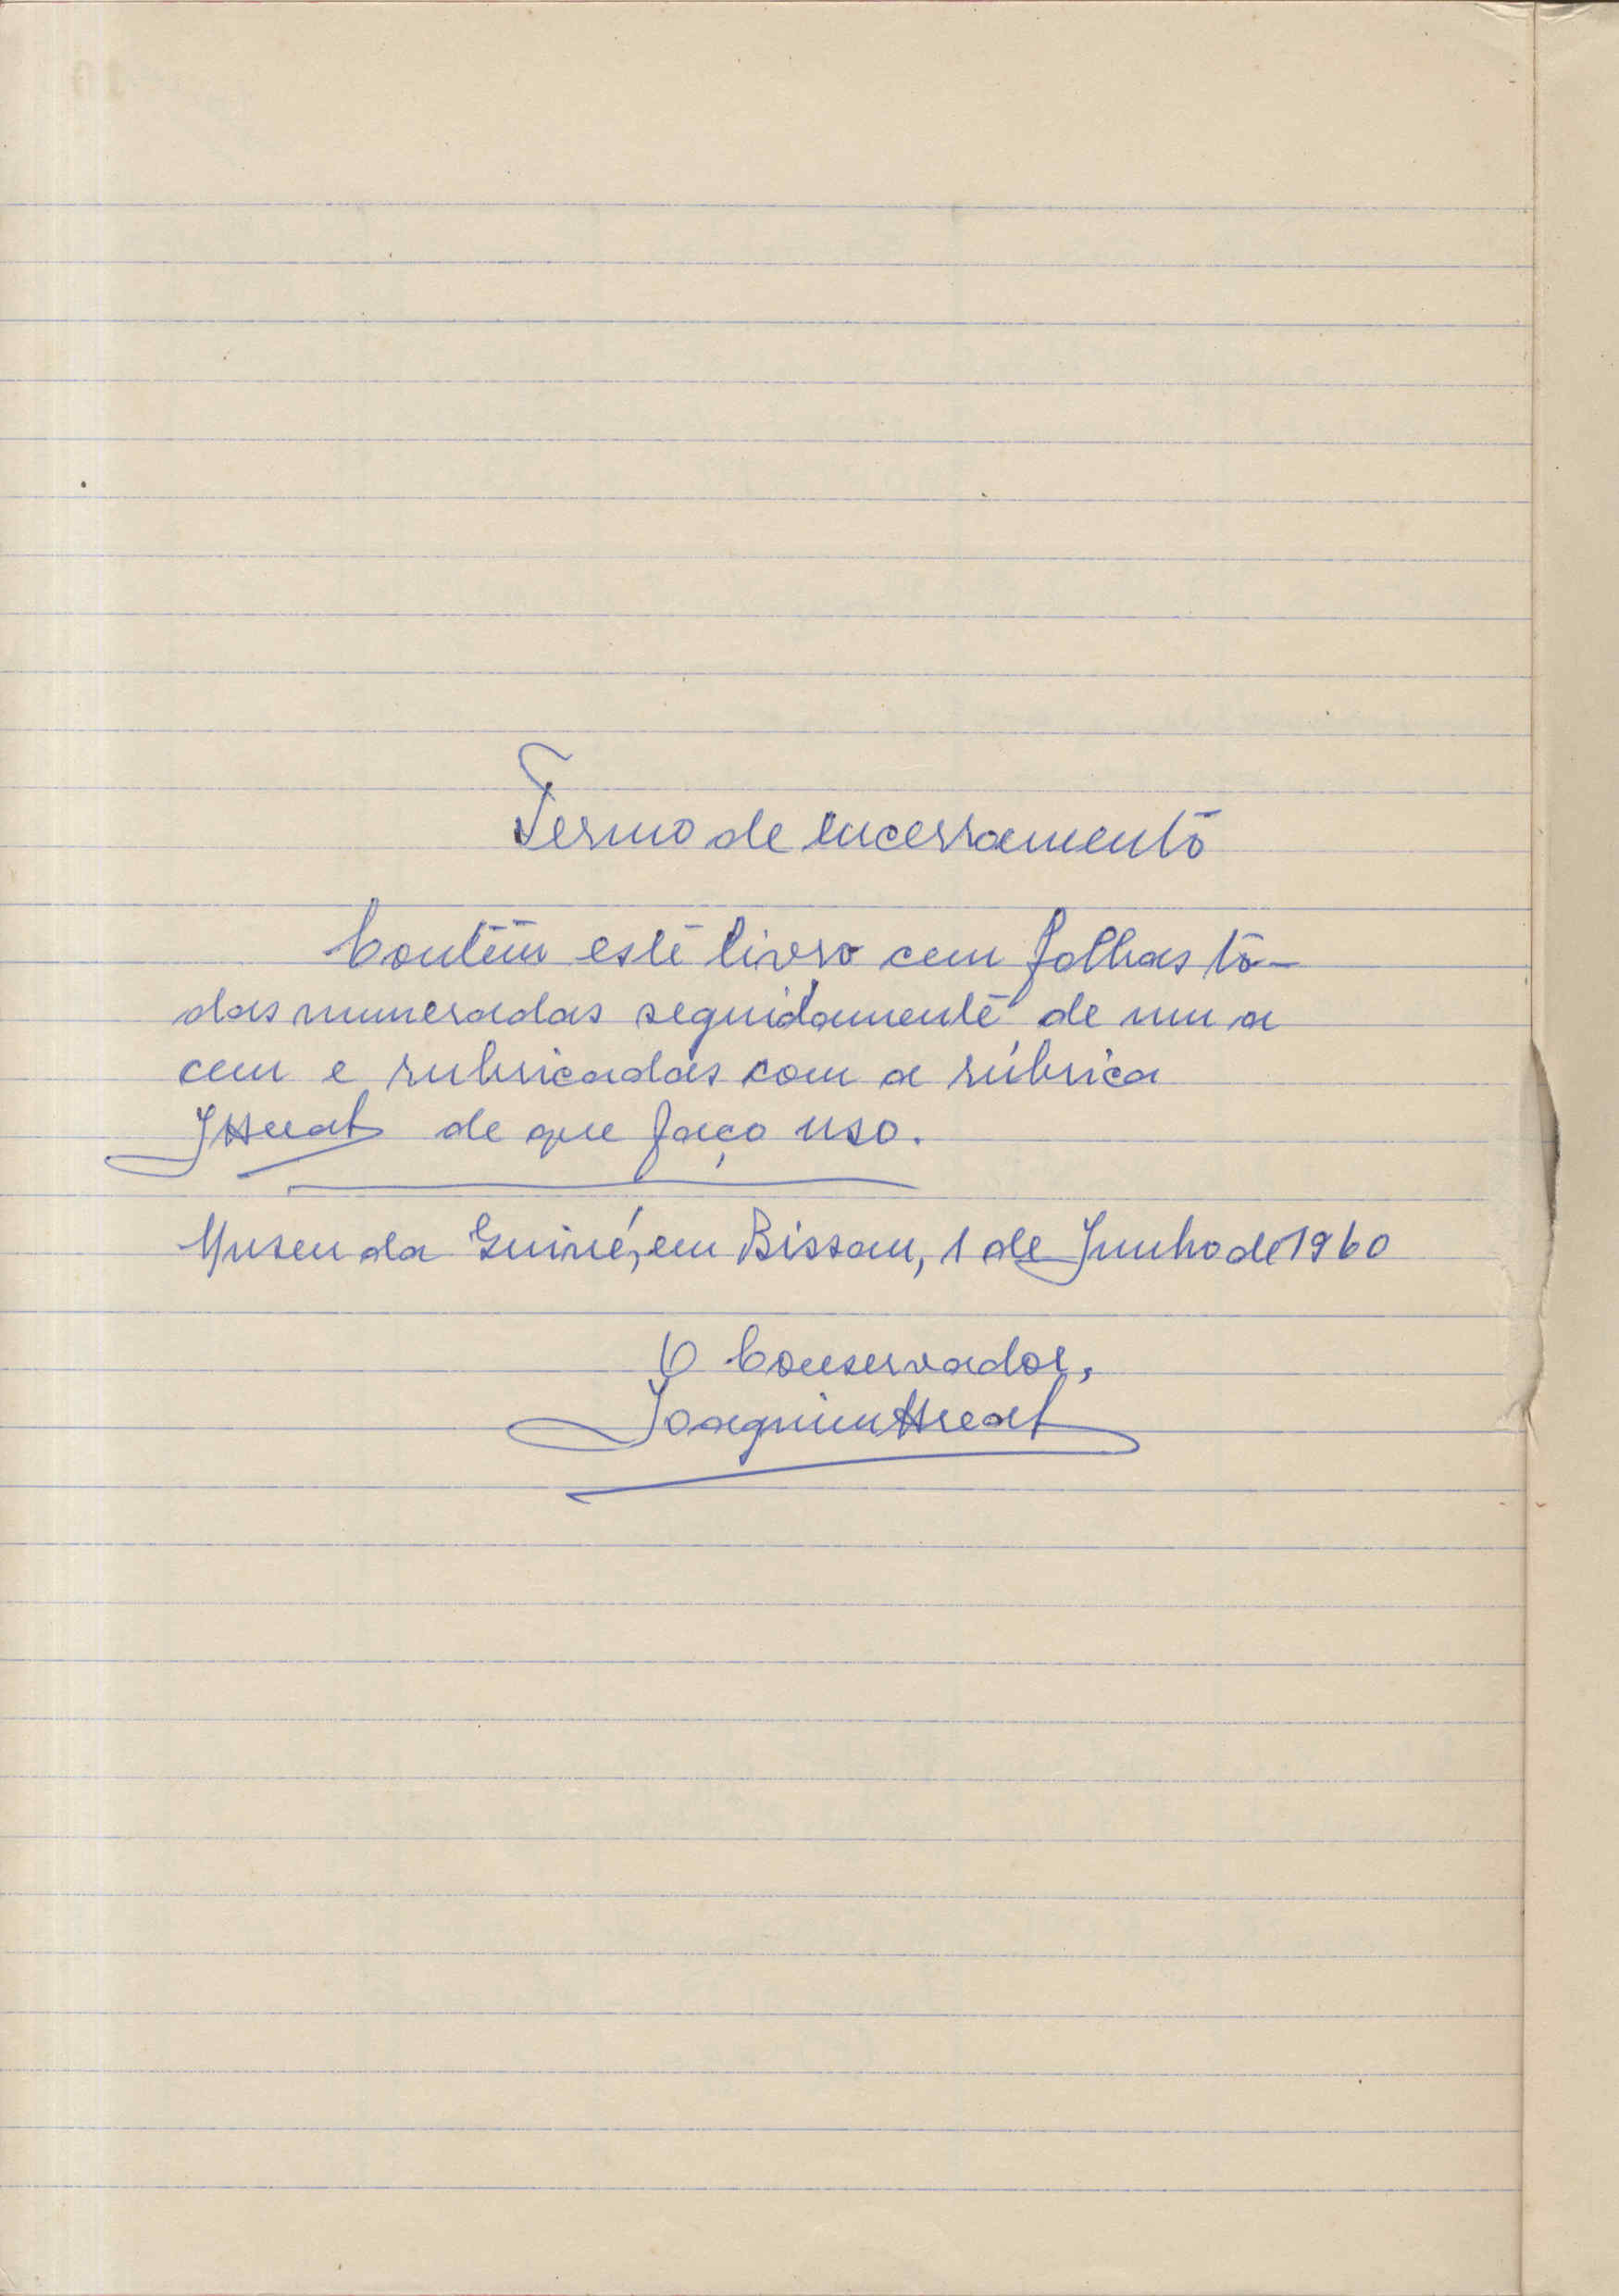 Termo de encerramento
Contém este livro cem folhas to-
das numeradas seguidamente de um a
cem e rubricadas com a rúbrica
de que faço uso.
Museu da Guiné, em Bissau, 1 de Junho de 1960
O Conservador,
Joaquim